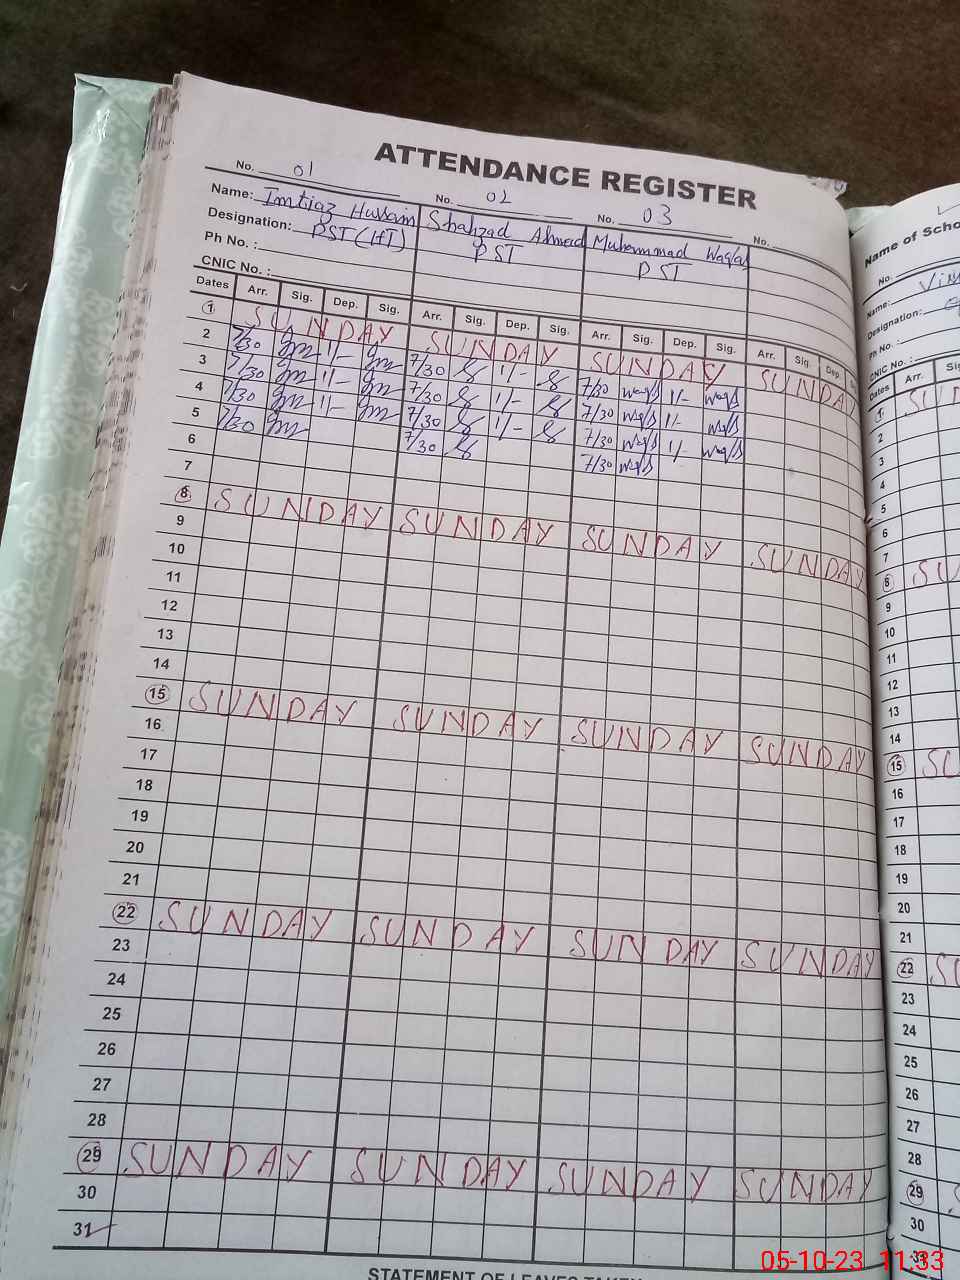 ATTENDANCE REGISTER
No. 01 No. 02 No. 03 No.
Name: Imtiaz Hussain Shahzad Ahmad Muhammad Waqas
Designation: PST (HT) PST PST
Ph No. :
CNIC No. :
Dates Arr. Sig. Dep. Sig. Arr. Sig. Dep. Sig. Arr. Sig. Dep. Sig. Arr. Sig. Dep.
1 SUNDAY SUNDAY SUNDAY SUNDAY
2 7/30 1/- 7/30 1/- 7/30 Waqas 1/- Waqas
3 7/30 1/- 7/30 1/- 7/30 Waqas 1/- Waqas
4 7/30 1/- 7/30 1/- 7/30 Waqas 1/- Waqas
5 7/30 7/30 7/30 Waqas
6
7
8 SUNDAY SUNDAY SUNDAY SUNDAY
9
10
11
12
13
14
15 SUNDAY SUNDAY SUNDAY SUNDAY
16
17
18
19
20
21
22 SUNDAY SUNDAY SUNDAY SUNDAY
23
24
25
26
27
28
29 SUNDAY SUNDAY SUNDAY SUNDAY
30
31
STATEMENT OF LEAVES TAKEN
Name of Scho
No.
Name:
Designation:
Ph No. :
CNIC No. :
Dates Arr. Sig
1 SUN
2
3
4
5
6
7
8 SU
9
10
11
12
13
14
15 SU
16
17
18
19
20
21
22 SU
23
24
25
26
27
28
29 S
30
31
05-10-23 11:33